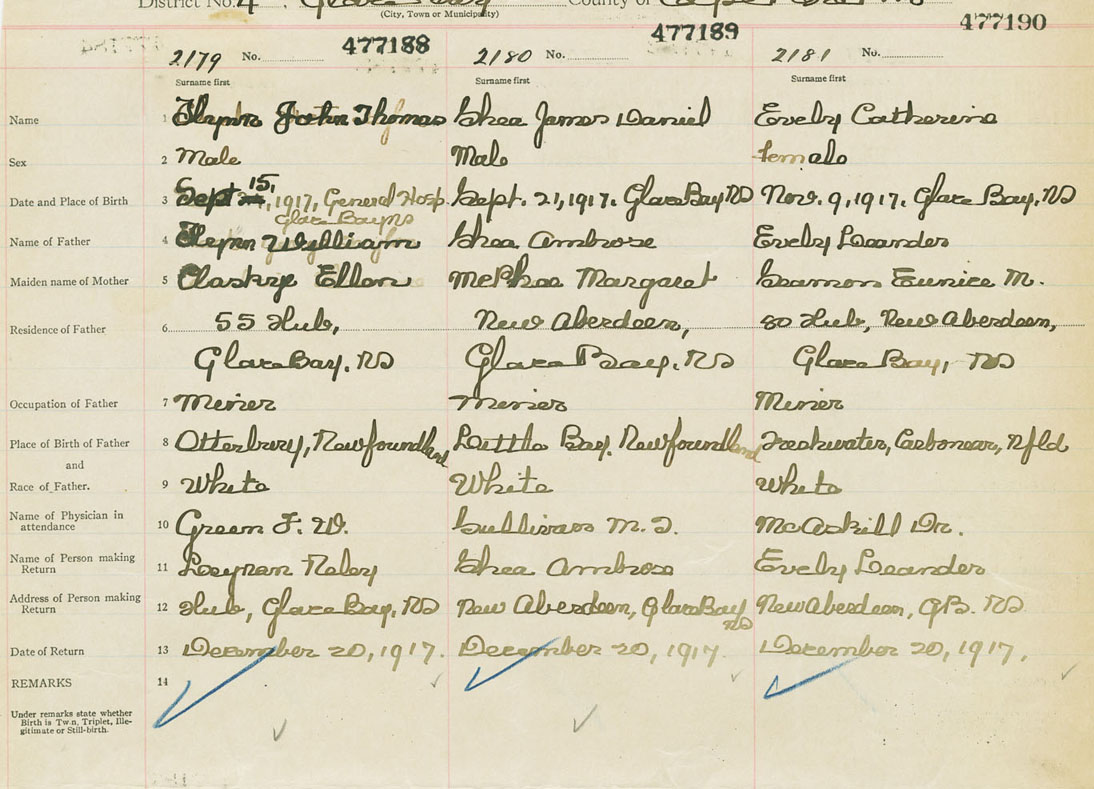 District No. 4, Glace Bay County of Cape Breton
(City, Town or Municipality)
477188 477189 477190
2179 No. 2180 No. 2181 No.
Surname first Surname first Surname first
Name 1 Flynn John Thomas Shea James Daniel Evely Catherine
Sex 2 Male Male female
Date and Place of Birth 3 Sept 15, 1917, General Hosp. Glace Bay NS Sept. 21, 1917. Glace Bay NS Nov. 9, 1917. Glace Bay, NS
Name of Father 4 Flynn William Shea Ambrose Evely Leander
Maiden name of Mother 5 Ellen McPhee Margaret Eunice M.
Residence of Father 6 55 Hub, New Aberdeen, 80 Hub, New Aberdeen,
Glace Bay, NS Glace Bay, NS Glace Bay, NS
Occupation of Father 7 Miner Miner Miner
Place of Birth of Father 8 Otterbury, Newfoundland Little Bay, Newfoundland Freshwater, Carbonear, Nfld
and
Race of Father. 9 White White White
Name of Physician in
attendance 10 Green F. W. Sullivan M. T. McAskill Dr.
Name of Person making
Return 11 Shea Ambrose Evely Leander
Address of Person making
Return 12 Hub, Glace Bay, NS New Aberdeen, Glace Bay NS New Aberdeen, G.B. NS
Date of Return 13 December 20, 1917. December 20, 1917. December 20, 1917.
REMARKS 14
Under remarks state whether
Birth is Twin, Triplet, Ille-
gitimate or Still-birth.